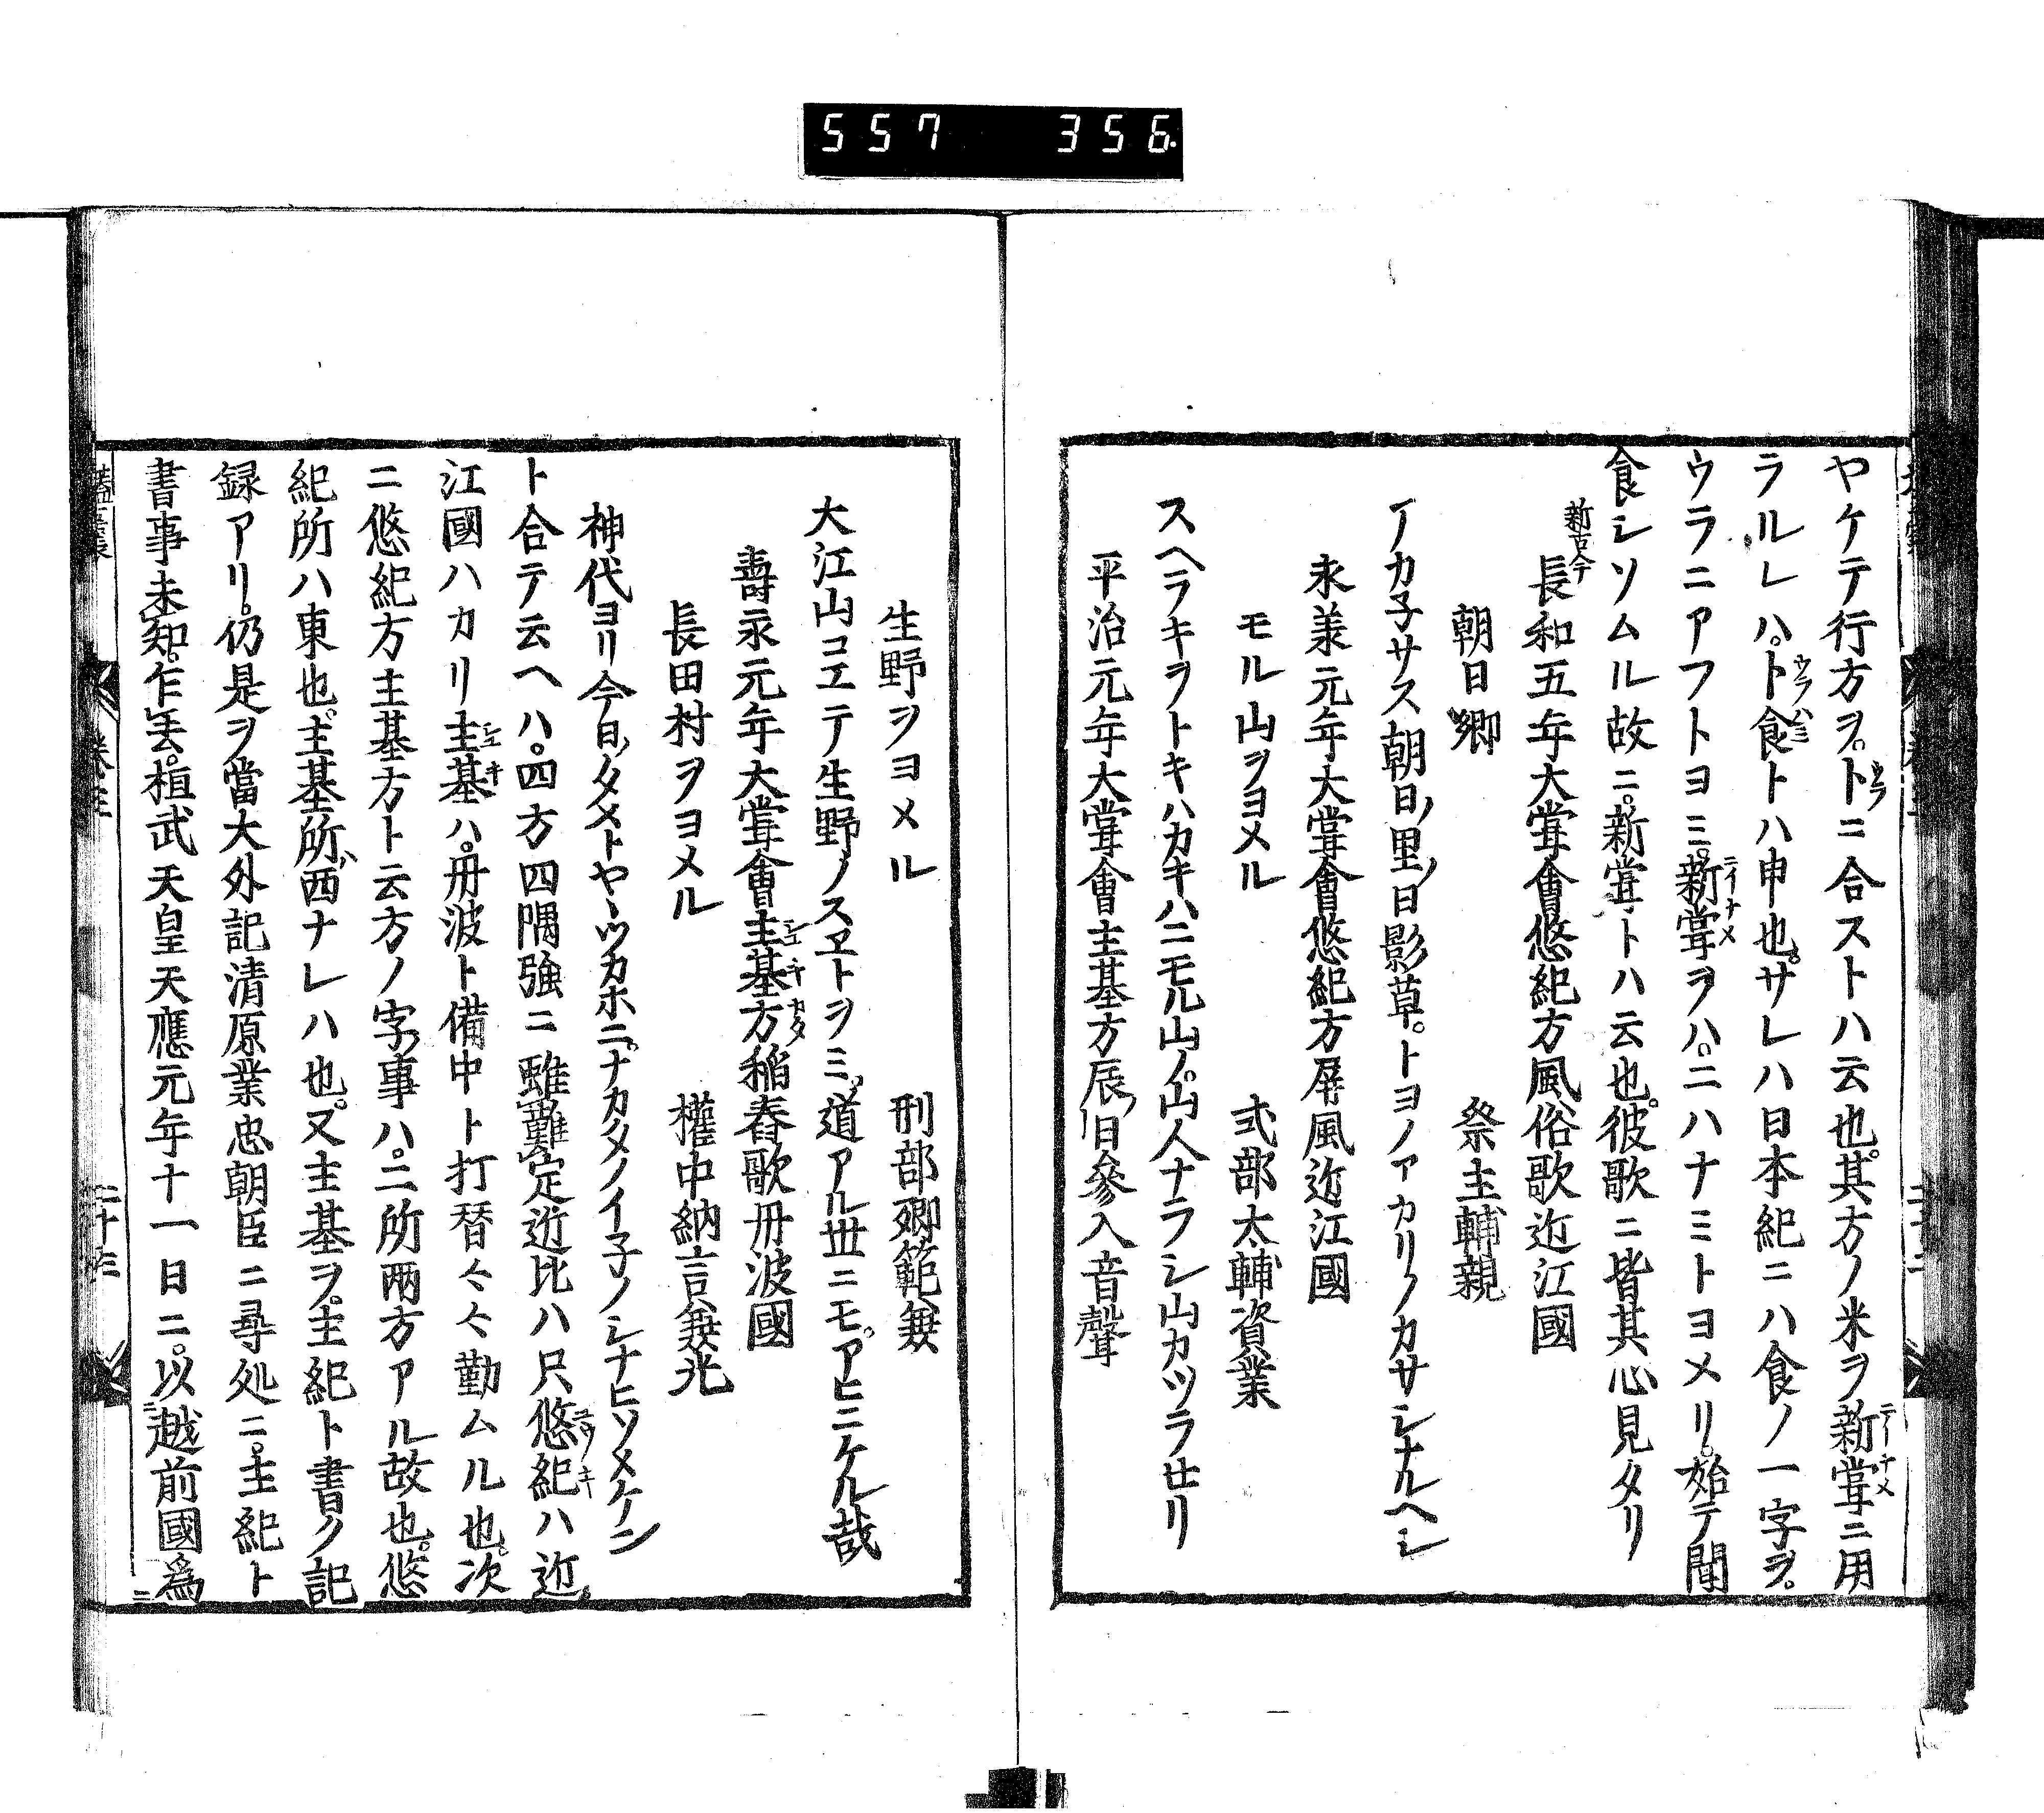 557 356
ヤケテ行方ヲ。卜ニ合ストハ云也。其方ノ米ヲ新甞ニ用
ラルレハ。卜食トハ申也。サレハ日本紀ニハ食ノ一字ヲ。
ウラニアフトヨミ。新甞ヲハ。ニハナミトヨメリ。始テ聞
食シソムル故ニ。新甞トハ云也。彼歌ニ皆其心見タリ
新古今
長和五年大甞會悠紀方風俗歌近江國
朝日郷 祭主輔親
アカ子サス朝日ノ里ノ日影草。トヨノアカリノカサシナルヘシ
永美元年大甞會悠紀方屏風近江國
モル山ヲヨメル 式部太輔資業
スヘラキヲトキハカキハニモル山ノ。山人ナラシ山カツラセリ
平治元年大甞會主基方辰ノ日參入音聲
生野ヲヨメル 刑部卿範兼
大江山コエテ生野ノスヱトヲミ。道アル丗ニモ。アヒニケル哉
壽永元年大甞會主基方稲舂歌丹波國
長田村ヲヨメル 權中納言兼光
神代ヨリ今日ノタメトヤ八ツカホニ。ナカタノイ子ノシナヒソメケン
ト合テ云ヘハ。四方四隅強ニ雖難定近比ハ只悠紀ハ近
江國ハカリ主基ハ。丹波ト備中ト打替々々勤ムル也。次
ニ悠紀方主基方ト云方ノ字ノ事ハ。二所兩方アル故也。悠
紀所ハ東也。主基所ハ西ナレハ也。又主基ヲ。主紀ト書ク記
録アリ。仍是ヲ當大外記清原業忠朝臣ニ尋処ニ。主紀ト
書事未知。乍去。桓武天皇天應元年十一日ニ。以越前國爲